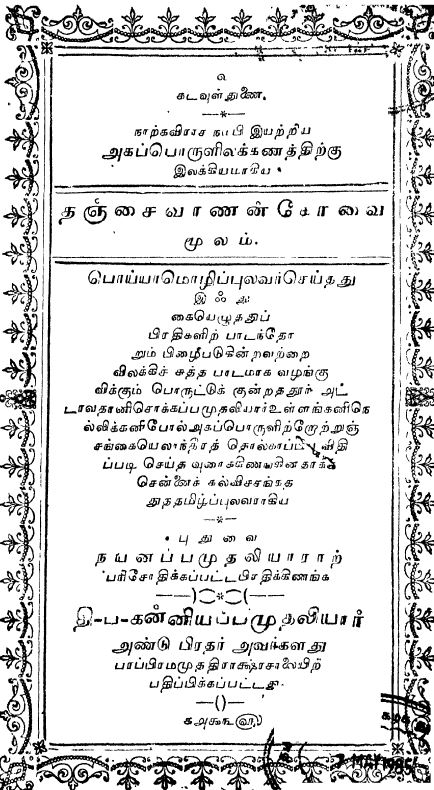 உ
கடவுள் துணை.
நாற்கவிராச நம்பி இயற்றிய
அகப்பொருளிலக்கணத்திற்கு
இலக்கியமாகிய
தஞ்சைவாணன்கோவை
மூலம்.
பொய்யாமொழிப்புலவர்செய்தது
இஃது
கையெழுத்துப்
பிரதிகளிற் பாடந்தோ
றும் பிழைபடுகின்றவற்றை
விலக்கிச் சுத்த பாடமாக வழங்கு
விக்கும் பொருட்டுக் குன்றத்தூர் அட்
டாவதானிசொக்கப்பமுதலியார்உள்ளங்கனிநெ
ல்லிக்கனிபோல்அகப்பொருளிற்றோற்றுஞ்
சங்கையெலாந்தீரத் தொல்காப்பிய விதி
ப்படி செய்த வுரைக்கிணையின்தாக்க
சென்னைக் கல்விச்சங்கத்
துதமிழ்ப்புலவராகிய
புதுவை
நயனப்பமுதலியாராற்
பரிசோதிக்கப்பட்டபிரதிக்கிணங்க
இ-ப-கன்னியப்பமுதலியார்
அண்டு பிரதர் அவர்களது
பாப்பிரமமுத்திராக்ஷரசாலையிற்
பதிப்பிக்கப்பட்டது.
கழக
MAY 1985